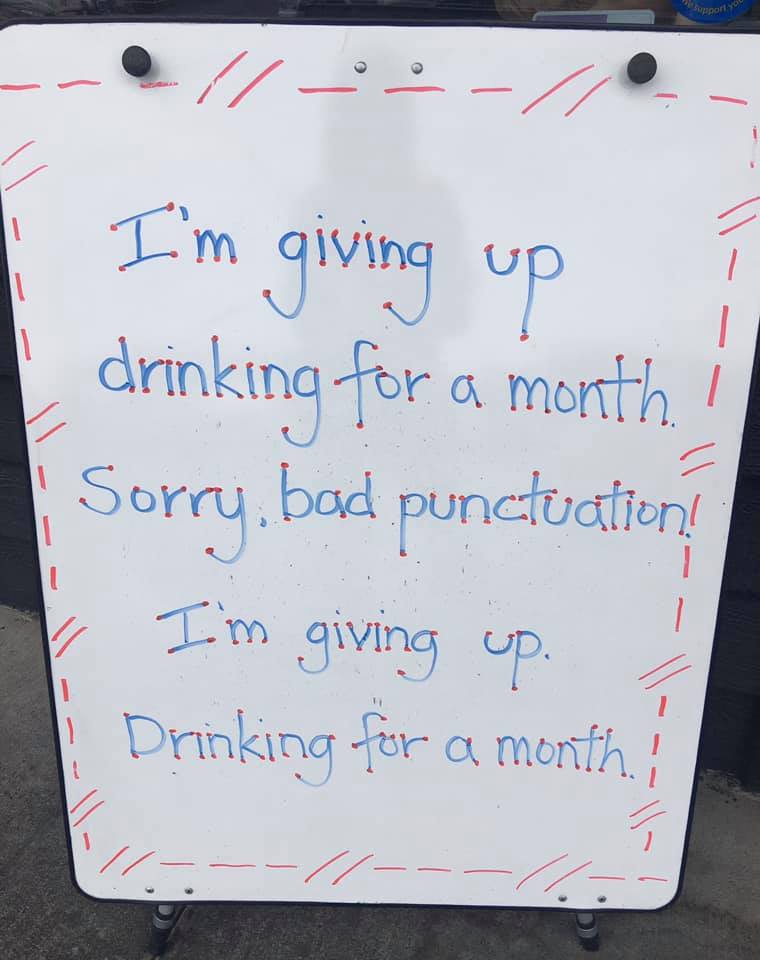 We support you
I'm giving up
drinking for a month.
Sorry, bad punctuation!
I'm giving up.
Drinking for a month.